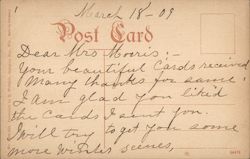 March 18-09
Post Card
Dear Mrs Morris:-
Your beautiful Cards received
Many thanks for same.
I am glad you liked
the Cards I sent you.
I will try to get you some
more winter scenes,